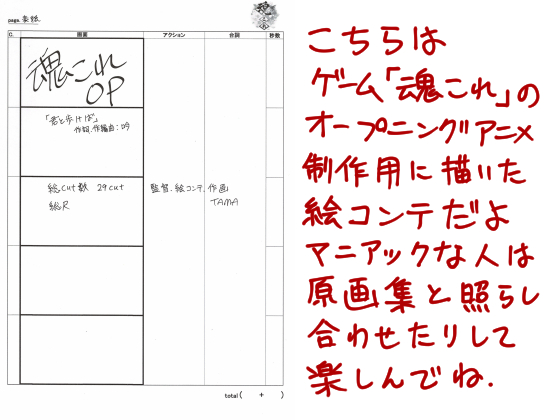 page. 表紙
C. 画面 アクション 台詞 秒数
魂これ
OP
「君と歩けば」
作詞.作編曲:吟
総cut数 29cut 監督.絵コンテ.作画
総R TAMA
total ( + )
こちらは
ゲーム「魂これ」の
オープニングアニメ
制作用に描いた
絵コンテだよ
マニアックな人は
原画集と照らし
合わせたりして
楽しんでね.